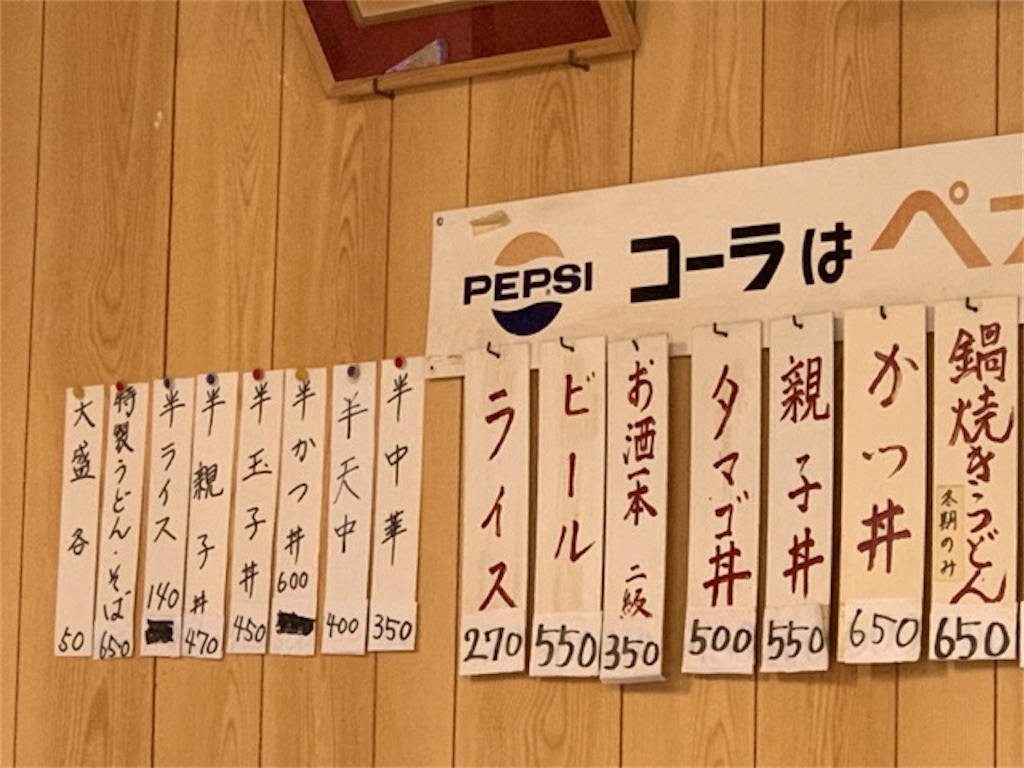 PEPSI コーラは ペ
鍋焼きうどん 冬期のみ 650
かつ丼 650
親子丼 550
タマゴ丼 500
お酒一本 二級 350
ビール 550
ライス 270
半中華 350
半天中 400
半かつ丼 600
半玉子丼 450
半親子丼 470
半ライス 140
特製うどん・そば 650
大盛各 50